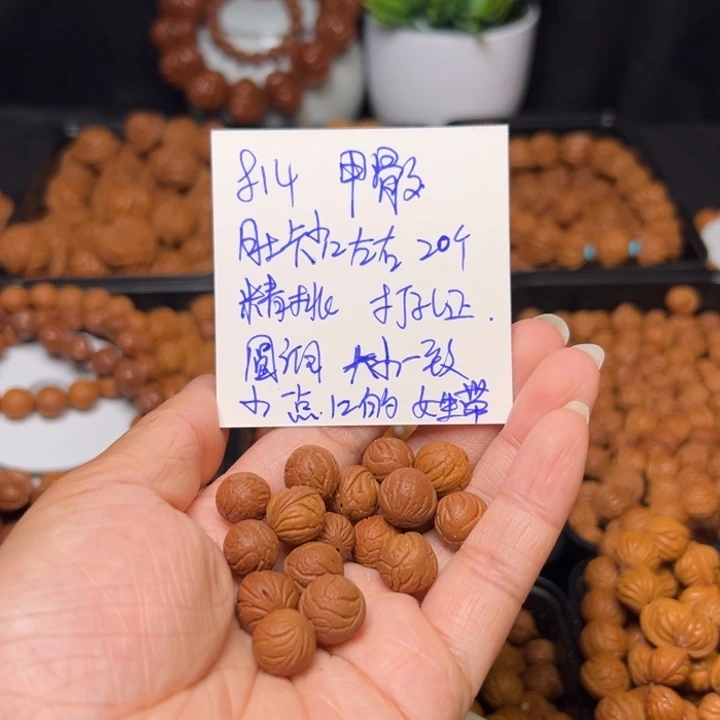 814 甲骨文
肚卡12左右 20个
精挑 打孔正.
圆润 大小一致
小点 12的 女生带